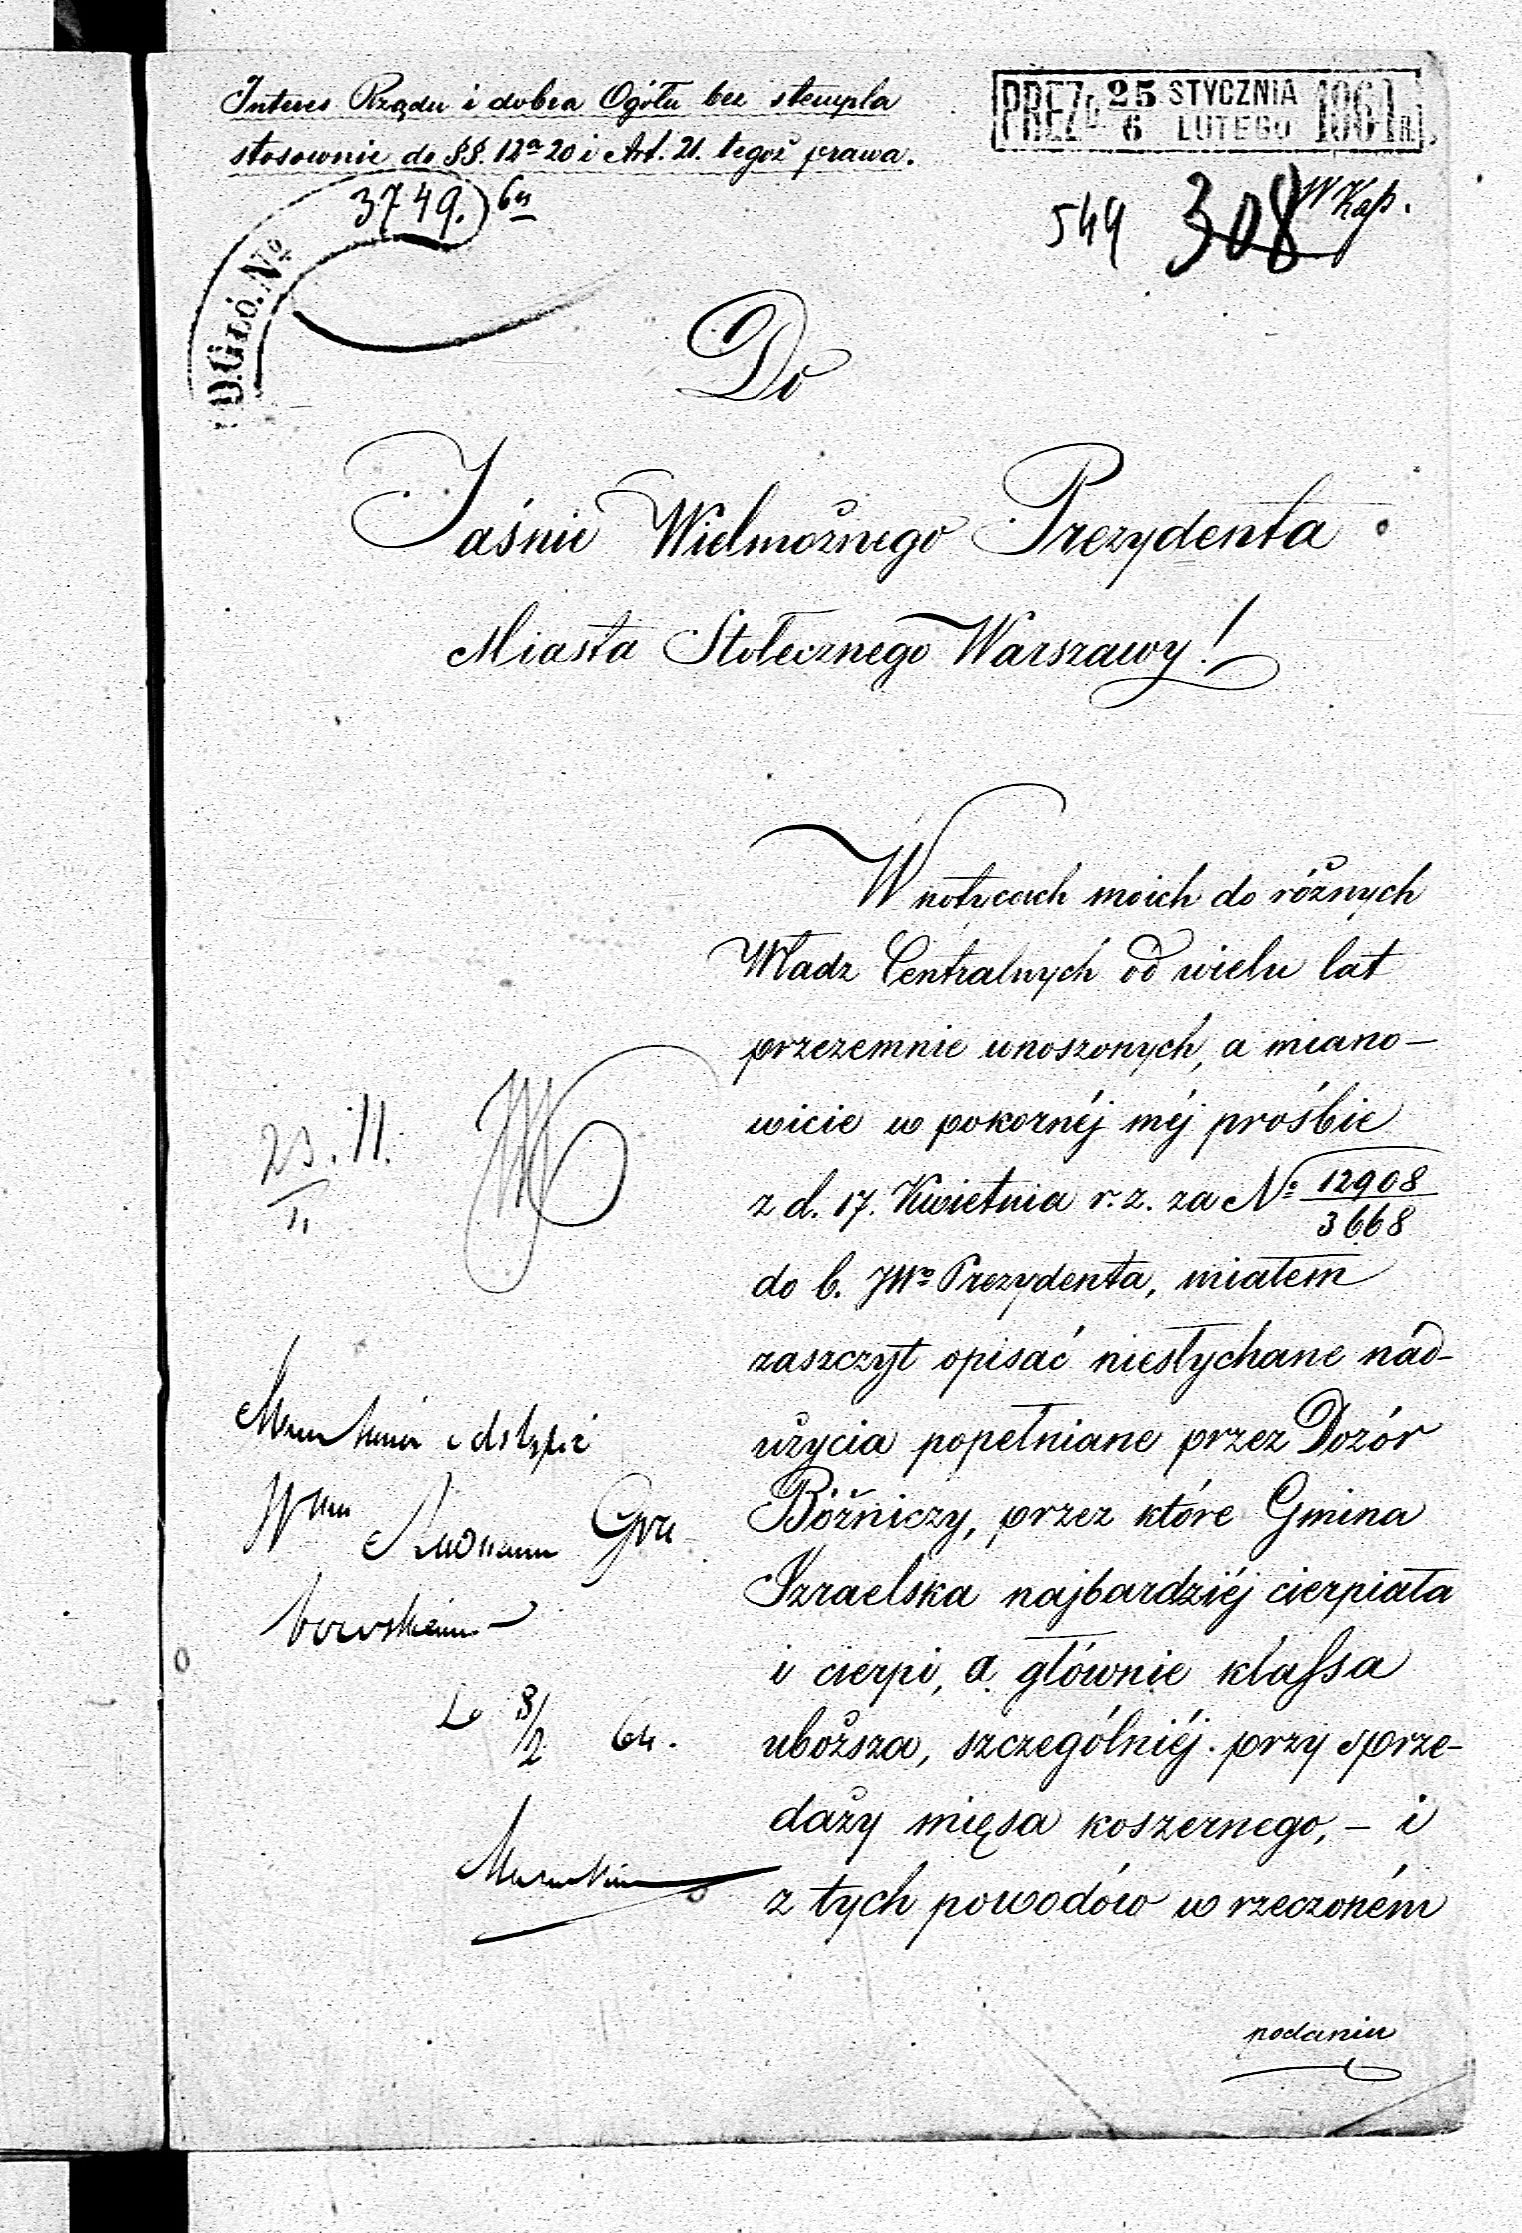 Interes Rządu i dobra Ogółu bez stempla
stosownie do §§. 12ª 20 i Art. 21. tegoż prawa.
PREZD. 25/6 STYCZNIA/LUTEGO 1864 R.
D.GŁÓ. Nº 3749.
544 308 Kap.
Do
Jaśnie Wielmożnego Prezydenta
Miasta Stołecznego Warszawy!
W notycach moich do różnych
Władz Centralnych od wielu lat
przezemnie wnoszonych, a miano-
wicie w pokornéj méj prośbie
z d. 17. Kwietnia r. z. za Nº 12908/3668
do b. JWº Prezydenta, miałem
zaszczyt opisać niesłychane nad-
użycia popełniane przez Dozór
Bóżniczy, przez które Gmina
Izraelska najbardziéj cierpiała
i cierpi, a głównie klassa
uboższa, szczególniéj przy sprze-
daży mięsa koszernego, - i
z tych powodów w rzeczoném
podaniu
23. 11.
8/2 64.